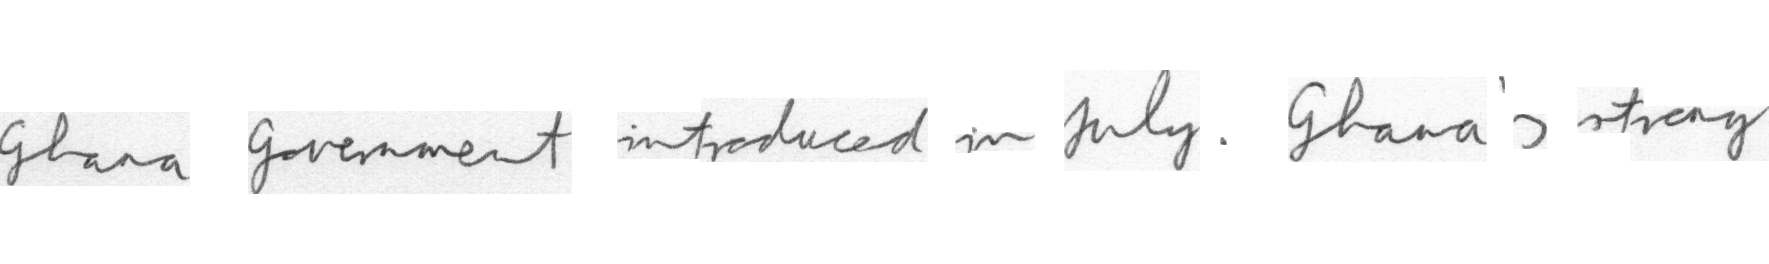 Ghana Government introduced in July. Ghana's strong